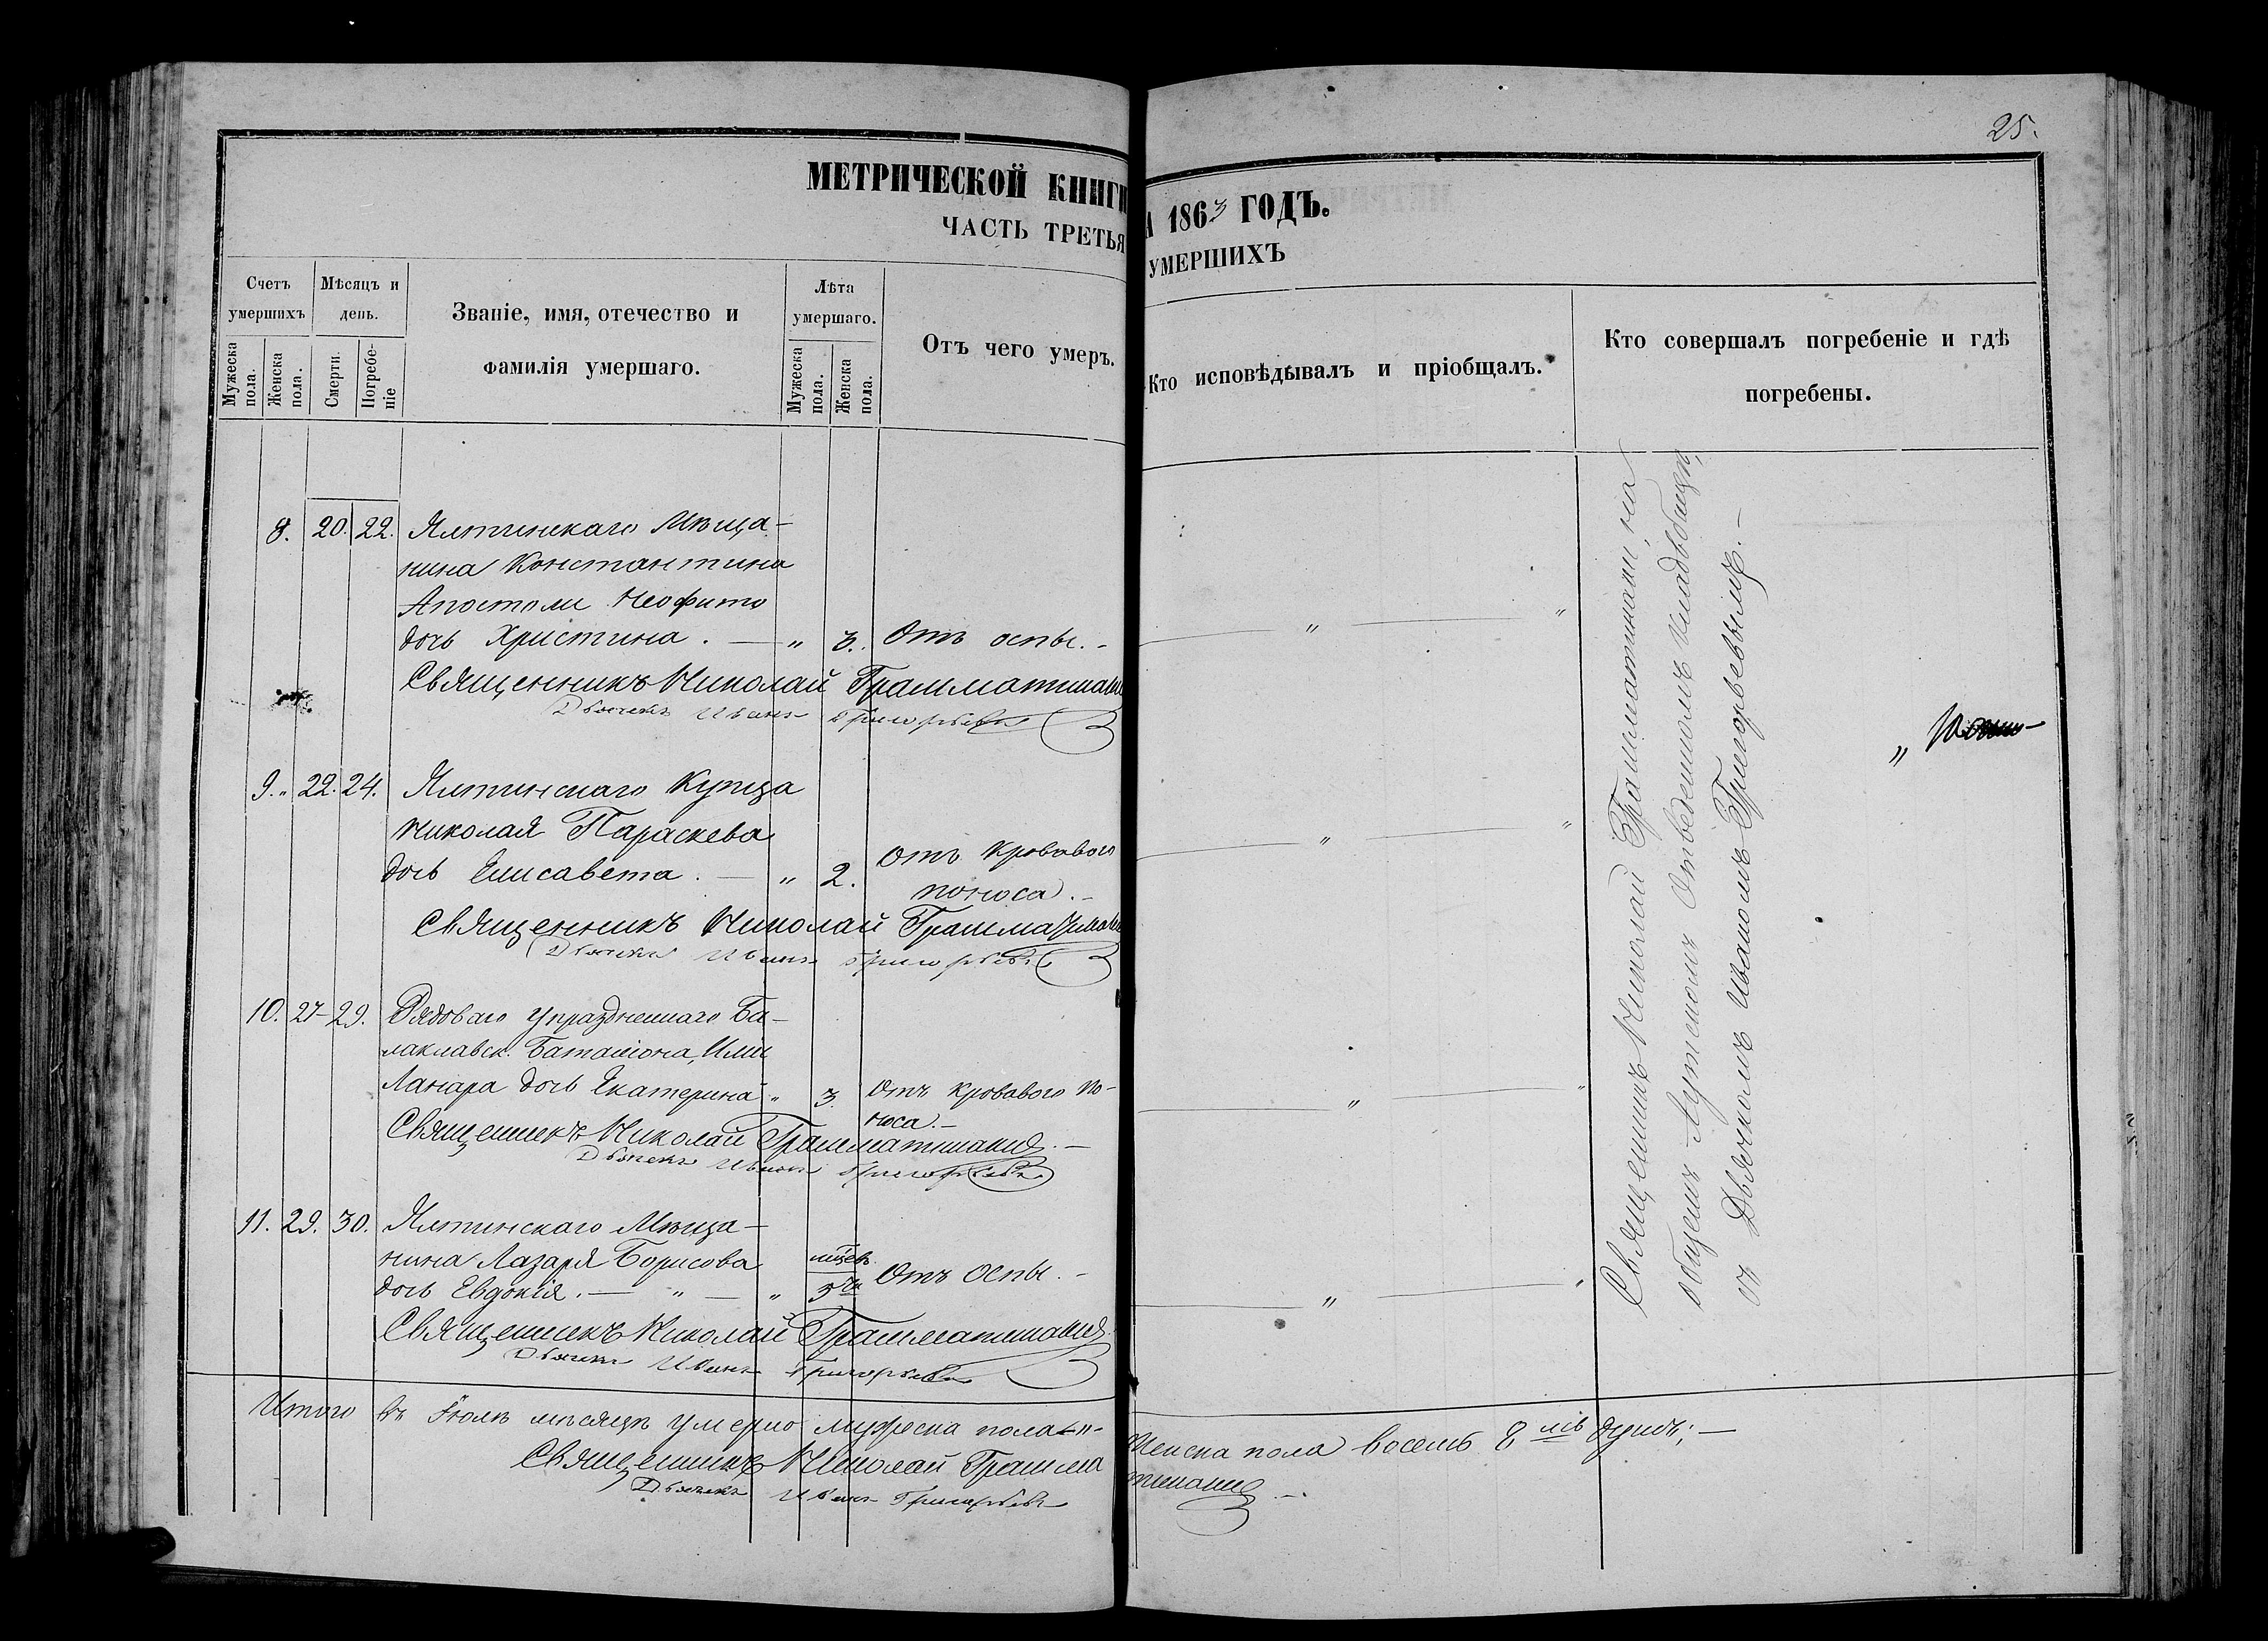 25.
МЕТРИЧЕСКОЙ КНИГИ
1863 ГОДЪ.
ЧАСТЬ ТРЕТЬЯ
УМЕРШИХЪ
Счетъ умершихъ
Мужеска пола.
Женска пола.
Мѣсяцъ и день.
Смерти.
Погребеніе
Званіе, имя, отечество и фамилія умершаго.
Лѣта умершаго.
Мужеска пола.
Женска пола.
Отъ чего умеръ.
Кто исповѣдывалъ и пріобщалъ.
Кто совершалъ погребеніе и гдѣ погребены.
8. 20. 22. Ялтинскаго Мѣща-
нина Константина
Апостоли Неофито
дочь Христина. — „ 3. Отъ оспы. -
Священникъ Николай Грамматикаки
Дьячекъ Иванъ Григорьевъ
9. „ 22. 24. Ялтинскаго Купца
Николая Параскева
дочь Елисавета. — „ 2. Отъ кроваваго
поноса. -
Священникъ Николай Грамматикаки
Дьячекъ Иванъ Григорьевъ
10. 27 29. Рядоваго упраздненнаго Ба-
лаклавск. Баталіона, Ильи
Ланара дочь Екатерина „ 3. Отъ кроваваго по-
носа. -
Священникъ Николай Грамматикаки. —
Дьячекъ Иванъ Григорьевъ
11. 29. 30. Ялтинскаго Мѣща-
нина Лазаря Борисова
дочь Евдокія. — „ — „ Отъ Оспы. -
Священникъ Николай Грамматикаки
Дьячекъ Иванъ Григорьевъ
Священникъ Николай Грамматикаки, на
общемъ Аутскомъ отведенномъ кладбищѣ,
съ Дьячкомъ Иваномъ Григорьевымъ. —
Итого въ Іюлѣ мѣсяцѣ умерло мужеска пола „ -
Женска пола восемь 8 мь душъ; —
Священникъ Николай Грамматикаки. —
Дьячекъ Иванъ Григорьевъ